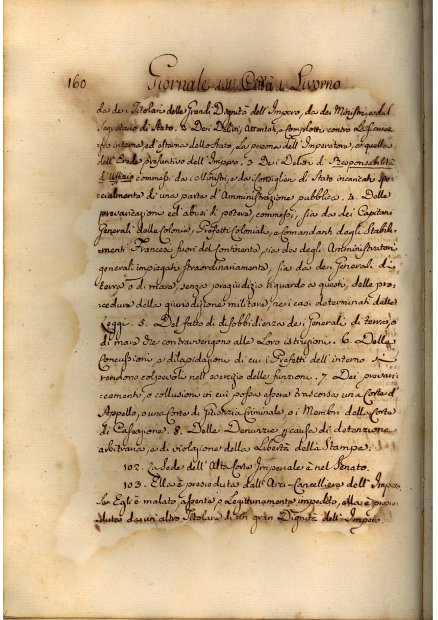 160 Giornale della Città di Livorno
da dei Titolari delle Grandi Dignità dell'Impero, da dei Ministri, e dal
Segretario di Stato. 2. Dei Delitti, Attentati, e Complotti contro la Sicurez
interna, ed esterna dello Stato, La persona dell'Imperatore, o quella
dell'Erede presuntivo dell'Impero. 3. Dei Delitti di Responsabilità
d'Uffizio commessi da i Ministri, e da Consiglieri di Stato incaricati spe
cialmente di una parte d'Amministrazione pubblica. 4. Delle
prevaricazioni ed abusi di potere, commessi, sia da dei Capitani
Generali delle Colonie, Prefetti Coloniali, e Comandanti degli Stabili-
menti Francesi fuori del Continente, sia da degli Amministratori
generali impiegati straordinariamente, sia da dei Generali di
terra o di mare, senza pregiudizio riguardo a questi, delle pro
cedura della giurisdizione militare, nei casi determinati dalle
Leggi. 5. Del fatto di disobbidienza dei Generali di terra, o
di mare che contravengono alle Loro istruzioni. 6. Delle
Concussioni, e dilapidazioni di cui i Prefetti dell'interno si
rendono colpevoli nell'esercizio delle funzioni. 7. Dei prevari
camenti, o collusioni in cui possa essere trascorsa una Corte d'
Appello, o una Corte di Giustizia Criminale, o i Membri della Corte
di Cassazione. 8. Delle Denunzie p causa di detenzione
arbitraria, e di violazione della Libertà della Stampa.
102. La Sede dell'Alta Corte Imperiale è nel Senato.
103. Ella è presieduta dall'Arci-Cancelliere dell'Impero
Se Egli è malato, assente, o Legittimamente impedito, ella è presie
duta da un'altro Titolare di un gran Dignità dell'Impero.